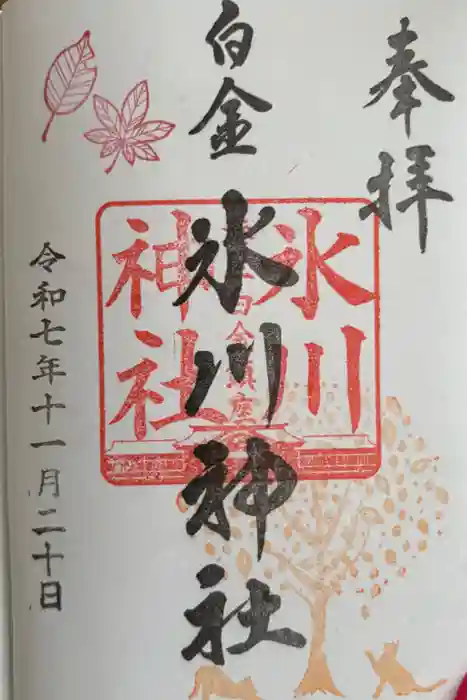 奉拝
白金
氷川神社
氷川
神社
白金鎮座
令和七年十一月二十日